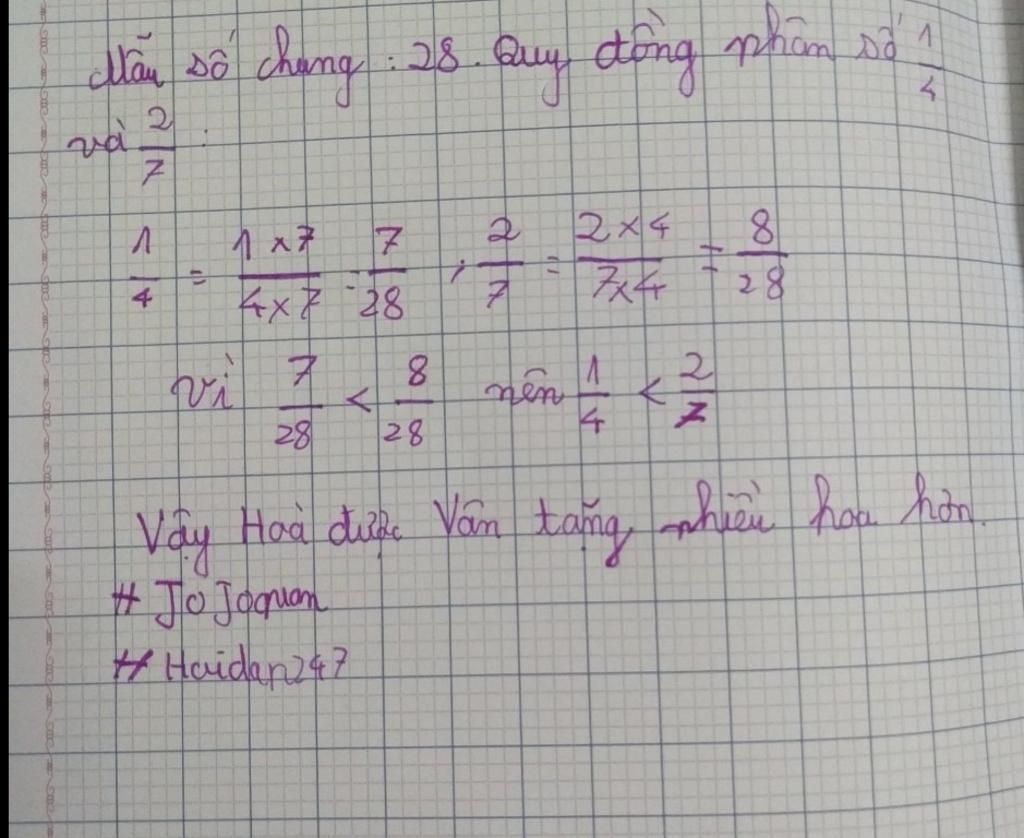 Mẫu số chung : 28. Quy đồng phân số 1/4
và 2/7 :
1/4 = (1 x 7)/(4 x 7) = 7/28 ; 2/7 = (2 x 4)/(7 x 4) = 8/28
vì 7/28 < 8/28 nên 1/4 < 2/7
Vậy Hoà được Vân tặng nhiều hoa hơn.
# JoJoquan
# Hoidap247